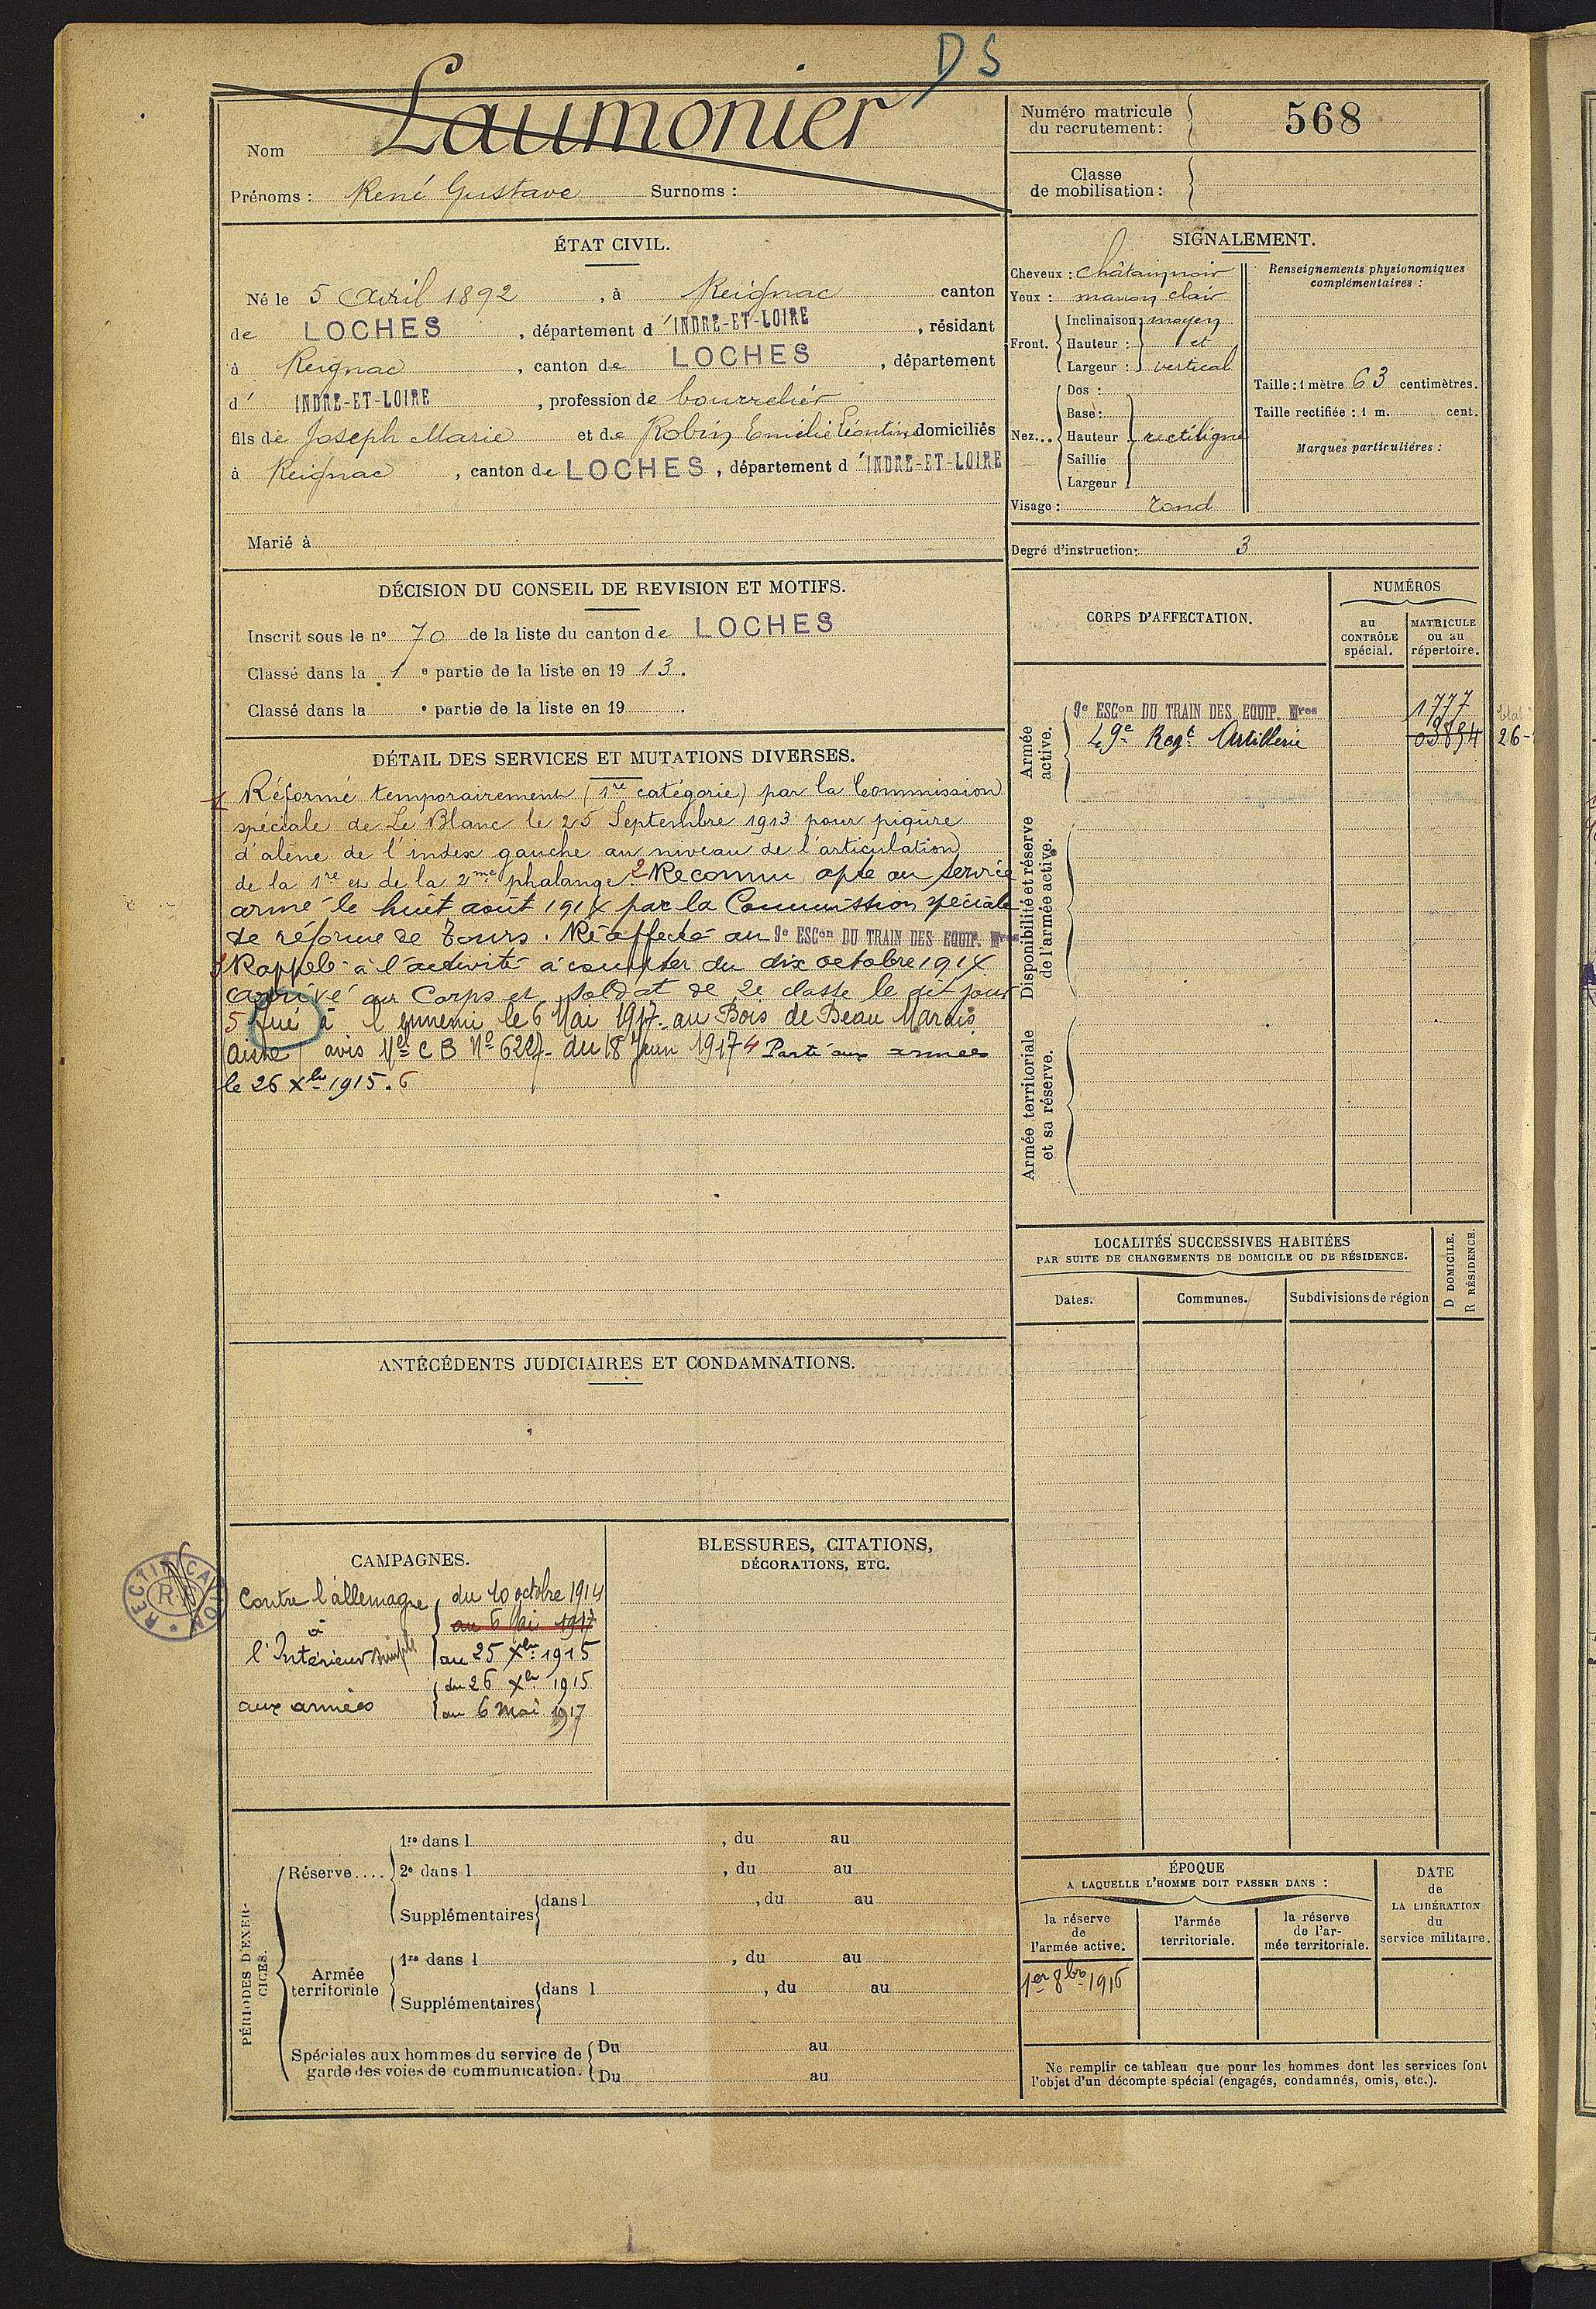 DS
Nom Laumonier
Prénoms : René Gustave Surnoms :
Numéro matricule
du recrutement :
568
Classe
de mobilisation :
ÉTAT CIVIL.
Né le 5 Avril 1892, à Reignac canton
de LOCHES, département d'INDRE-ET-LOIRE, résidant
à Reignac, canton de LOCHES, département
d' INDRE-ET-LOIRE, profession de bourrelier
fils de Joseph Marie et de Robin Emélie Léontine domiciliés
à Reignac, canton de LOCHES, département d'INDRE-ET-LOIRE
Marié à
SIGNALEMENT.
Cheveux : châtain noir
Yeux : marron clair
Front. Inclinaison : moyen
Hauteur : et
Largeur : vertical
Nez... Dos :
Base :
Hauteur rectiligne
Saillie
Largeur
Visage : rond
Renseignements physionomiques
complémentaires :
Taille : 1 mètre 63 centimètres.
Taille rectifiée : 1 m. cent.
Marques particulières :
Degré d'instruction : 3
DÉCISION DU CONSEIL DE REVISION ET MOTIFS.
Inscrit sous le n° 70 de la liste du canton de LOCHES
Classé dans la 1e partie de la liste en 1913.
Classé dans la e partie de la liste en 19 .
CORPS D'AFFECTATION.
NUMÉROS
au
CONTRÔLE
spécial.
MATRICULE
ou au
répertoire.
Armée
active.
9e ESCon DU TRAIN DES EQUIP. Mres 1777
49e Regt Artillerie 03854
26-
Disponibilité et réserve
de l'armée active.
Armée territoriale
et sa réserve.
DÉTAIL DES SERVICES ET MUTATIONS DIVERSES.
1 Réformé temporairement (1re catégorie) par la Commission
spéciale de Le Blanc le 25 Septembre 1913 pour piqure
d'alène de l'index gauche au niveau de l'articulation
de la 1re et de la 2me phalange. 2 Reconnu apte au service
armé le huit août 1914 par la Commission spéciale
de réforme de Tours. Réaffecté au 9e ESCon DU TRAIN DES EQUIP. Mres
3 Rappelé à l'activité à compter du dix octobre 1914
Arrivé au Corps et soldat de 2e classe le dit jour
5 Tué à l'ennemi le 6 Mai 1917 au Bois de Beau Marais
Aisne avis Mel C B No 6227 du 18 Juin 1917 4 Parti aux armées
le 26 Xbre 1915. 6
LOCALITÉS SUCCESSIVES HABITÉES
PAR SUITE DE CHANGEMENTS DE DOMICILE OU DE RÉSIDENCE.
Dates.
Communes.
Subdivisions de région
D DOMICILE.
R RÉSIDENCE.
ANTÉCÉDENTS JUDICIAIRES ET CONDAMNATIONS.
CAMPAGNES.
Contre l'allemagne du 10 octobre 1914
au 6 Mai 1917
à
l'Intérieur simple au 25 Xbre 1915
du 26 Xbre 1915
aux armées au 6 Mai 1917
RECTIFICATION
BLESSURES, CITATIONS,
DÉCORATIONS, ETC.
PÉRIODES D'EXER-
CICES.
Réserve....
1re dans l , du au
2e dans l , du au
Supplémentaires dans l , du au
Armée
territoriale
1re dans l , du au
Supplémentaires dans l , du au
Spéciales aux hommes du service de
garde des voies de communication.
Du au
Du au
ÉPOQUE
A LAQUELLE L'HOMME DOIT PASSER DANS :
la réserve
de
l'armée active.
l'armée
territoriale.
la réserve
de l'ar-
mée territoriale.
DATE
de
LA LIBÉRATION
du
service militaire.
1er 8bre 1916
Ne remplir ce tableau que pour les hommes dont les services font
l'objet d'un décompte spécial (engagés, condamnés, omis, etc.).